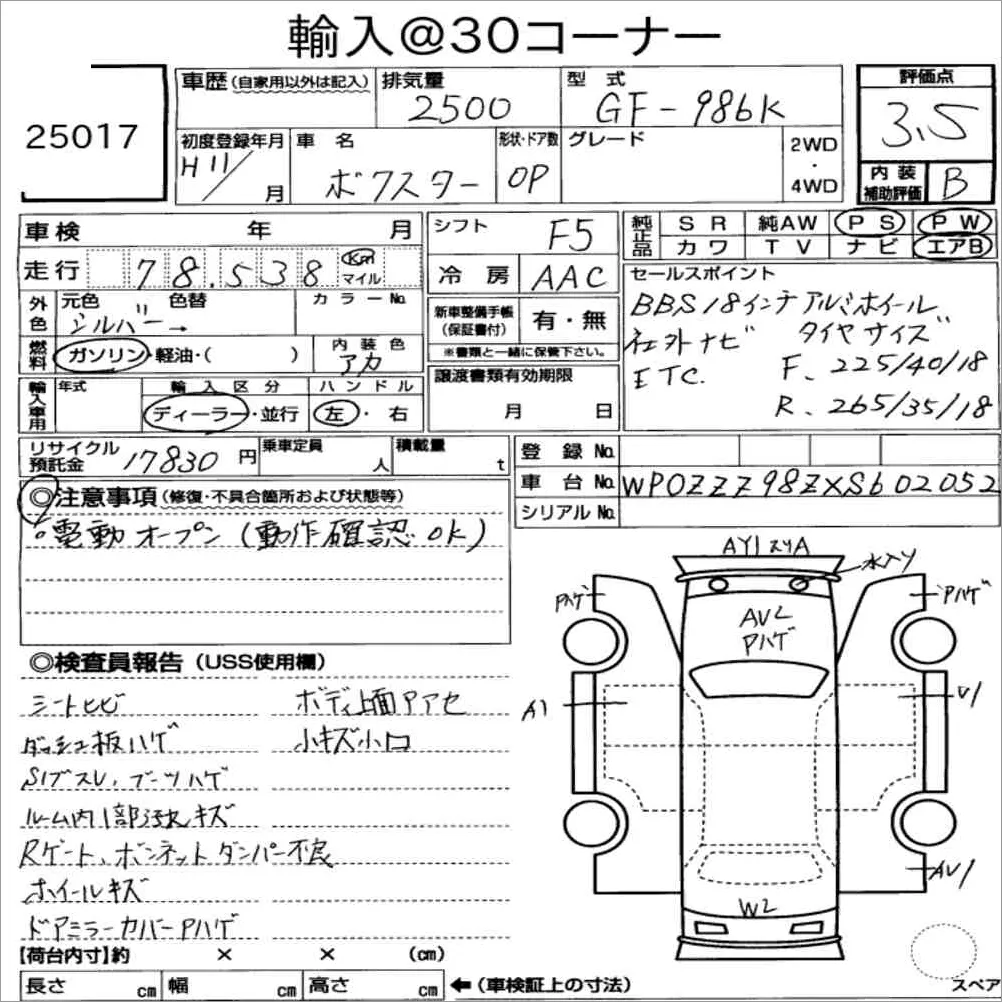 輸入@30コーナー
25017
車歴(自家用以外は記入)
排気量
2500
型 式
GF-986K
評価点
3.5
初度登録年月
H11/
月
車 名
ボクスター
形状・ドア数
OP
グレード
2WD
・
4WD
内装
補助評価
B
車検 年 月
走行 78.538 Km
マイル
外色
元色 色替
シルバー→
カラーNo.
燃料
ガソリン・軽油・( )
内装色
アカ
輸入車用
年式
輸入区分
ディーラー・並行
ハンドル
左・右
リサイクル
預託金
17830円
乗車定員
人
積載量
t
シフト
F5
冷房
AAC
新車整備手帳
(保証書付)
有・無
※書類と一緒に保管下さい。
譲渡書類有効期限
月 日
純正品
SR 純AW PS PW
カワ TV ナビ エアB
セールスポイント
BBS18インチアルミホイール
社外ナビ タイヤサイズ
ETC. F、225/40/18
R、265/35/18
登録No.
車台No. WP0ZZZ98ZXS602052
シリアルNo.
◎注意事項(修復・不具合箇所および状態等)
電動オープン(動作確認OK)
◎検査員報告(USS使用欄)
シートヒビ
ボディ上面アアセ
ダッシュ板ハゲ
小キズ小凹
Sノブスレ、ブーツハゲ
ルーム内1部汚れキズ
Rゲート、ボンネットダンパー不良
ホイールキズ
ドアミラーカバーPハゲ
AY1
水入り
Pハゲ
Pハゲ
AU2
Pハゲ
A1
U1
AU1
W2
【荷台内寸】約 × × (cm)
長さ cm 幅 cm 高さ cm ←(車検証上の寸法)
スペア